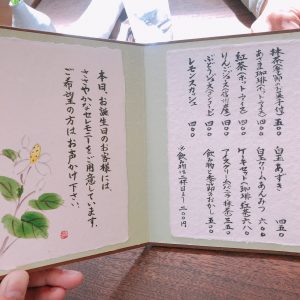 抹茶(季節のお菓子付)五五〇
あざみ珈琲(ホット・アイス)四〇〇
紅茶(ホット・アイス)四〇〇
りんごジュース(信州産)四〇〇
ぶどうジュース 四〇〇
レモンスカッシュ 四〇〇
白玉あずき 四五〇
白玉クリームあんみつ 六〇〇
ケーキセット(珈琲・紅茶)六八〇
アイスクリーム 抹茶 三五〇
飲み物と季節のおかし 五〇〇
本日、お誕生日のお客様には
ささやかなセレモニーをご用意しています。
ご希望の方はお声かけ下さい。